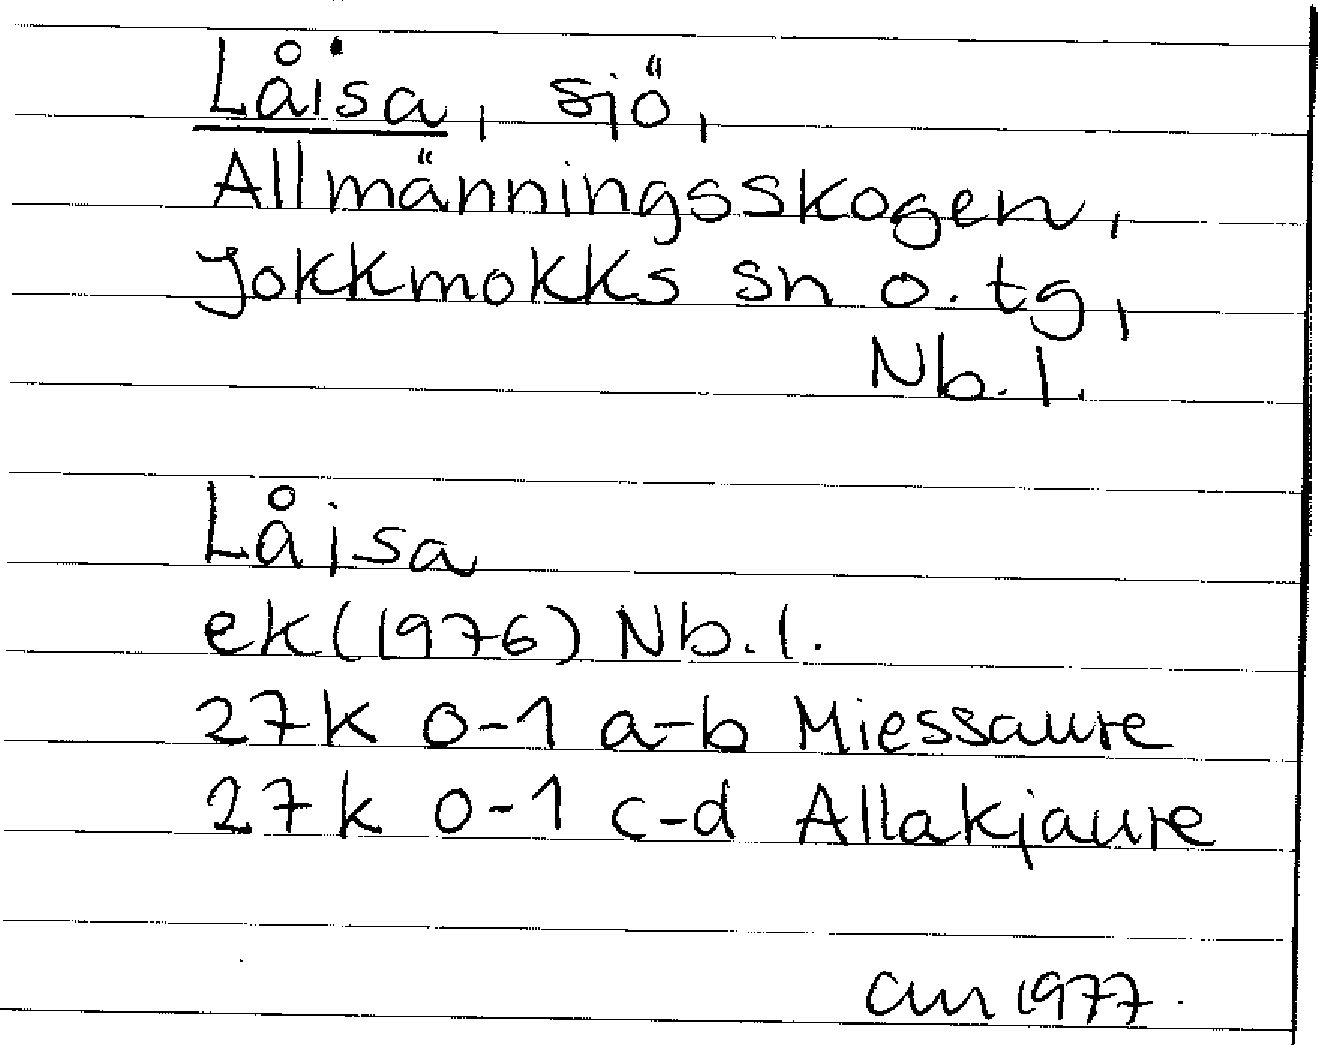 Låisa, sjö,
Allmänningsskogen,
Jokkmokks sn o. tg,
Nb. l.
Låisa
ek (1976) Nb. l.
27K 0-1 a-b Miessaure
27K 0-1 c-d Allakjaure
1977.